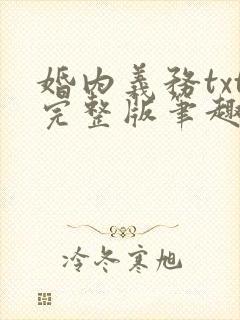 婚内義務txt
完整版筆趣
冷冬寒旭